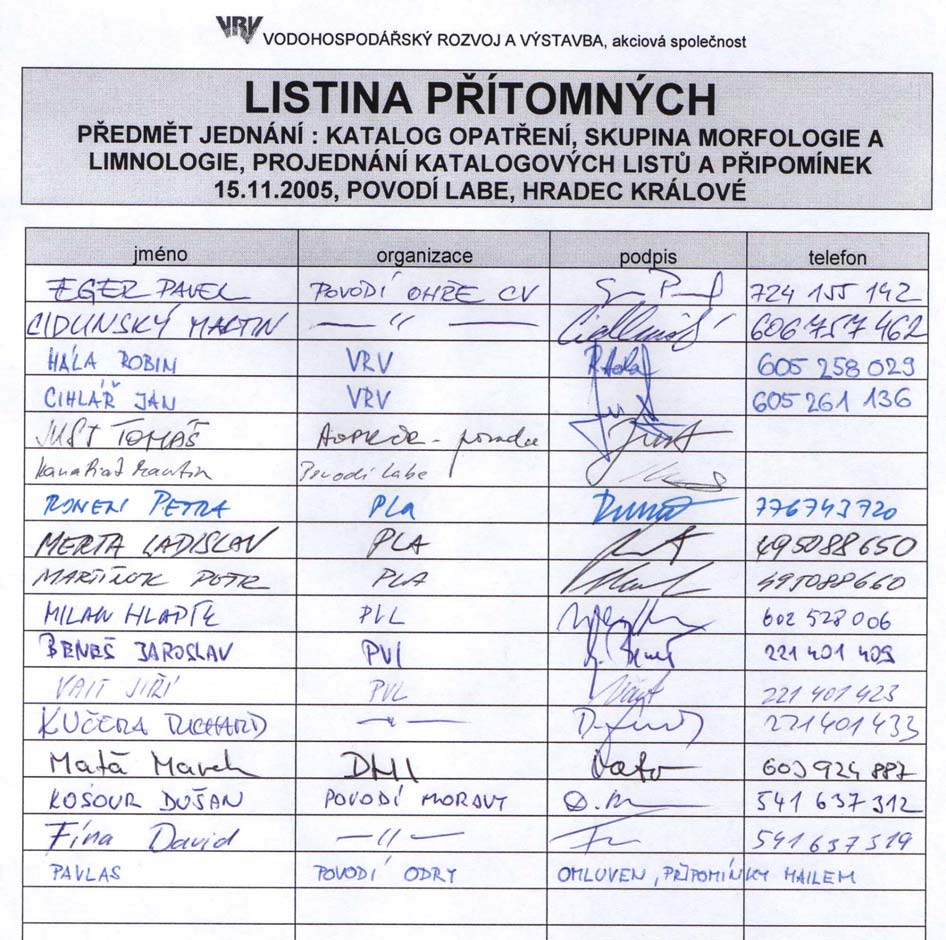 VRV VODOHOSPODÁŘSKÝ ROZVOJ A VÝSTAVBA, akciová společnost
LISTINA PŘÍTOMNÝCH
PŘEDMĚT JEDNÁNÍ : KATALOG OPATŘENÍ, SKUPINA MORFOLOGIE A
LIMNOLOGIE, PROJEDNÁNÍ KATALOGOVÝCH LISTŮ A PŘIPOMÍNEK
15.11.2005, POVODÍ LABE, HRADEC KRÁLOVÉ
jméno organizace podpis telefon
EGER PAVEL POVODÍ OHŘE CV 724 155 142
CIDLINSKÝ MARTIN — " — 606 757 462
HÁLA ROBIN VRV 605 258 029
CIHLÁŘ JAN VRV 605 261 136
JUST TOMÁŠ Just
Povodí Labe
RONEN PETRA PLa 776743720
MERTA LADISLAV PLA 495088650
MARTÍNEK PETR PLA 495088660
MILAN HLADÍK PVL 602 528 006
BENEŠ JAROSLAV PVL 221 401 409
VAIT JIŘÍ PVL 221 401 423
KUČERA RICHARD — " — 221 401 433
Maťa Marek DHI 603 924 887
KOSOUR DUŠAN POVODÍ MORAVY 541 637 312
Fína David — " — 541 637 319
PAVLAS POVODÍ ODRY OMLUVEN, PŘIPOMÍNKY MAILEM